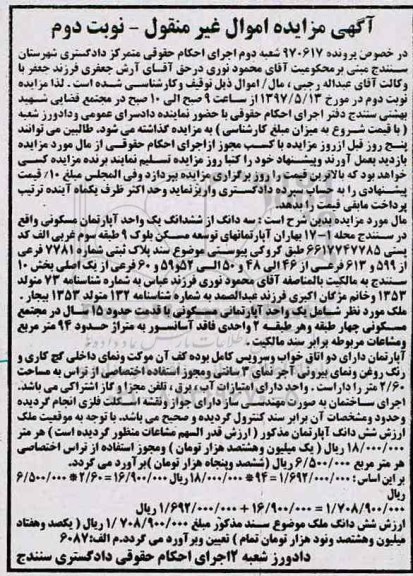 آگهی مزایده اموال غیر منقول - نوبت دوم
در خصوص پرونده ۹۷۰۶۱۷ شعبه دوم اجرای احکام حقوقی متمرکز دادگستری شهرستان
سنندج مبنی بر محکومیت آقای محمود نوری در حق آقــای آرش جعفری فرزند جعفر با
وکالت آقای عبداله رجبی ، مال / اموال ذیل توقیف وکارشناسی شده است . لذا مزایده
نوبت دوم در مورخ ۱۳۹۷/۵/۱۳ از ساعت ۹ صبح الی ۱۰ صبح در مجتمع قضایی شهید
بهشتی سنندج دفتر اجرای احکام حقوقی با حضور نماینده دادسرای عمومی و دادورز شعبه
( با قیمت شروع به میزان مبلغ کارشناسی ) به مزایده گذاشته می شود. طالبین می توانند
پنج روز قبل از روز مزایده با کسب مجوز از اجرای احکام حقوقــی از مال مورد مزایده
بازدید بعمل آورند وپیشنهاد خود را کتبا روز مزایده تسلیم نمایند برنده مزایده کسی
خواهد بود که بالاترین قیمت را روز برگزاری مزایده بپردازد وفی المجلس مبلغ ۱۰٪ قیمت
پیشنهادی را به حساب سپرده دادگستری واریز نماید وحد اکثر ظرف یکماه آینده ترتیب
پرداخت مابقی قیمت را بدهد.
مال مورد مزایده بدین شرح است : سه دانک از ششدانک یک واحد آپارتمان مسکونی واقع
در سنندج محله ۱-۱۷ بهاران آپارتمانهای توسعه مسکن بلوک ۹ طبقه دوم غربی الف کد
پستی ۶۶۱۷۷۴۷۷۸۵ طبق کروکی پیوستی موضوع سند پلاک ثبتی شماره ۷۷۸۱ فرعی
از ۵۹۹ و ۶۱۳ فرعــی از ۴۶ الی ۴۸ و ۵۰ الــی ۵۲و ۵۹ و ۶۰ فرعی از یک اصلی بخش ۱۰
سنندج به مالکیت بالمناصفه آقای محمود نوری فرزند عباس به شماره شناسنامه ۷۳ متولد
۱۳۵۳ و خانم مژگان اکبری فرزند عبدالصمد به شماره شناسنامه ۱۳۲ متولد ۱۳۵۳ بیجار .
ملک مورد نظر شــامل یک واحد آپارتمانی مسکونی با قدمت حدود ۱۵ســال در مجتمع
مسکونی چهار طبقه وهر طبقه ۲ واحدی فاقد آسانســور به متراژ حــدود ۹۴ متر مربع
ومشاعات مربوطه برابر سند مالکیت .
آپارتمان دارای دو اتاق خواب وسرویس کامل بوده کف آن موکت ونمای داخلی گچ کاری و
رنگ روغن ونمای بیرونی آجر نمای ۳ سانتی ومجوز استفاده اختصاصی از تراس به مساحت
۲/۶۰ متر را داراست . واحد دارای امتیازات آب ، برق ، تلفن مجزا و گاز اشتراکی می باشد.
اجرای ساختمان به صورت مهندسی ساز دارای جواز ونقشه اسکلت فلزی انجام گردیده
وحدود ومشخصات آن برابر سند کنترل گردیده و صحیح می باشد. با توجه به موقعیت ملک
ارزش شش دانگ آپارتمان مذکور ( ارزش قدر السهم مشاعات منظور گردیده است ) هر متر
۱۸/۰۰۰/۰۰۰ ریال ( یک میلیون وهشتصد هزار تومان ) ومجوز استفاده از تراس اختصاصی
هر متر مربع ۶/۵۰۰/۰۰۰ ریال (ششصد وپنجاه هزار تومان )برآورد می گردد.
بر این اساس: ۱/۶۹۲/۰۰۰/۰۰۰ =۹۴ * ۱۸/۰۰۰/۰۰۰ ریال ۱۶/۹۰۰/۰۰۰ =۲/۶۰ * ۶/۵۰۰/۰۰۰
ریال
۱/۷۰۸/۹۰۰/۰۰۰ = ۱۶/۹۰۰/۰۰۰ + ۱/۶۹۲/۰۰۰/۰۰۰ ریال
ارزش شش دانگ ملک موضوع سـند مذکور مبلغ ۱/۷۰۸/۹۰۰/۰۰۰ ریال ( یکصد وهفتاد
میلیون وهشتصد ونود هزار تومان تمام ) تعیین وبرآورد می گردد.م الف:۶۰۸۷
دادورز شعبه ۲اجرای احکام حقوقی دادگستری سنندج